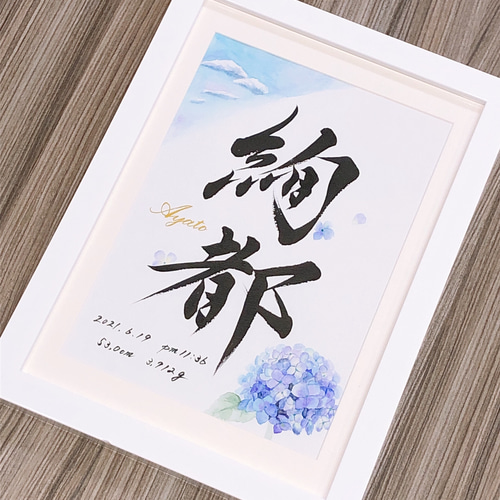 絢都
Ayato
2021.6.19 pm11:36
53.0cm 3.912g